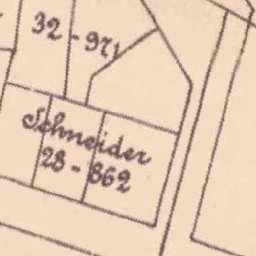 32 - 971
Schneider
28 - 862